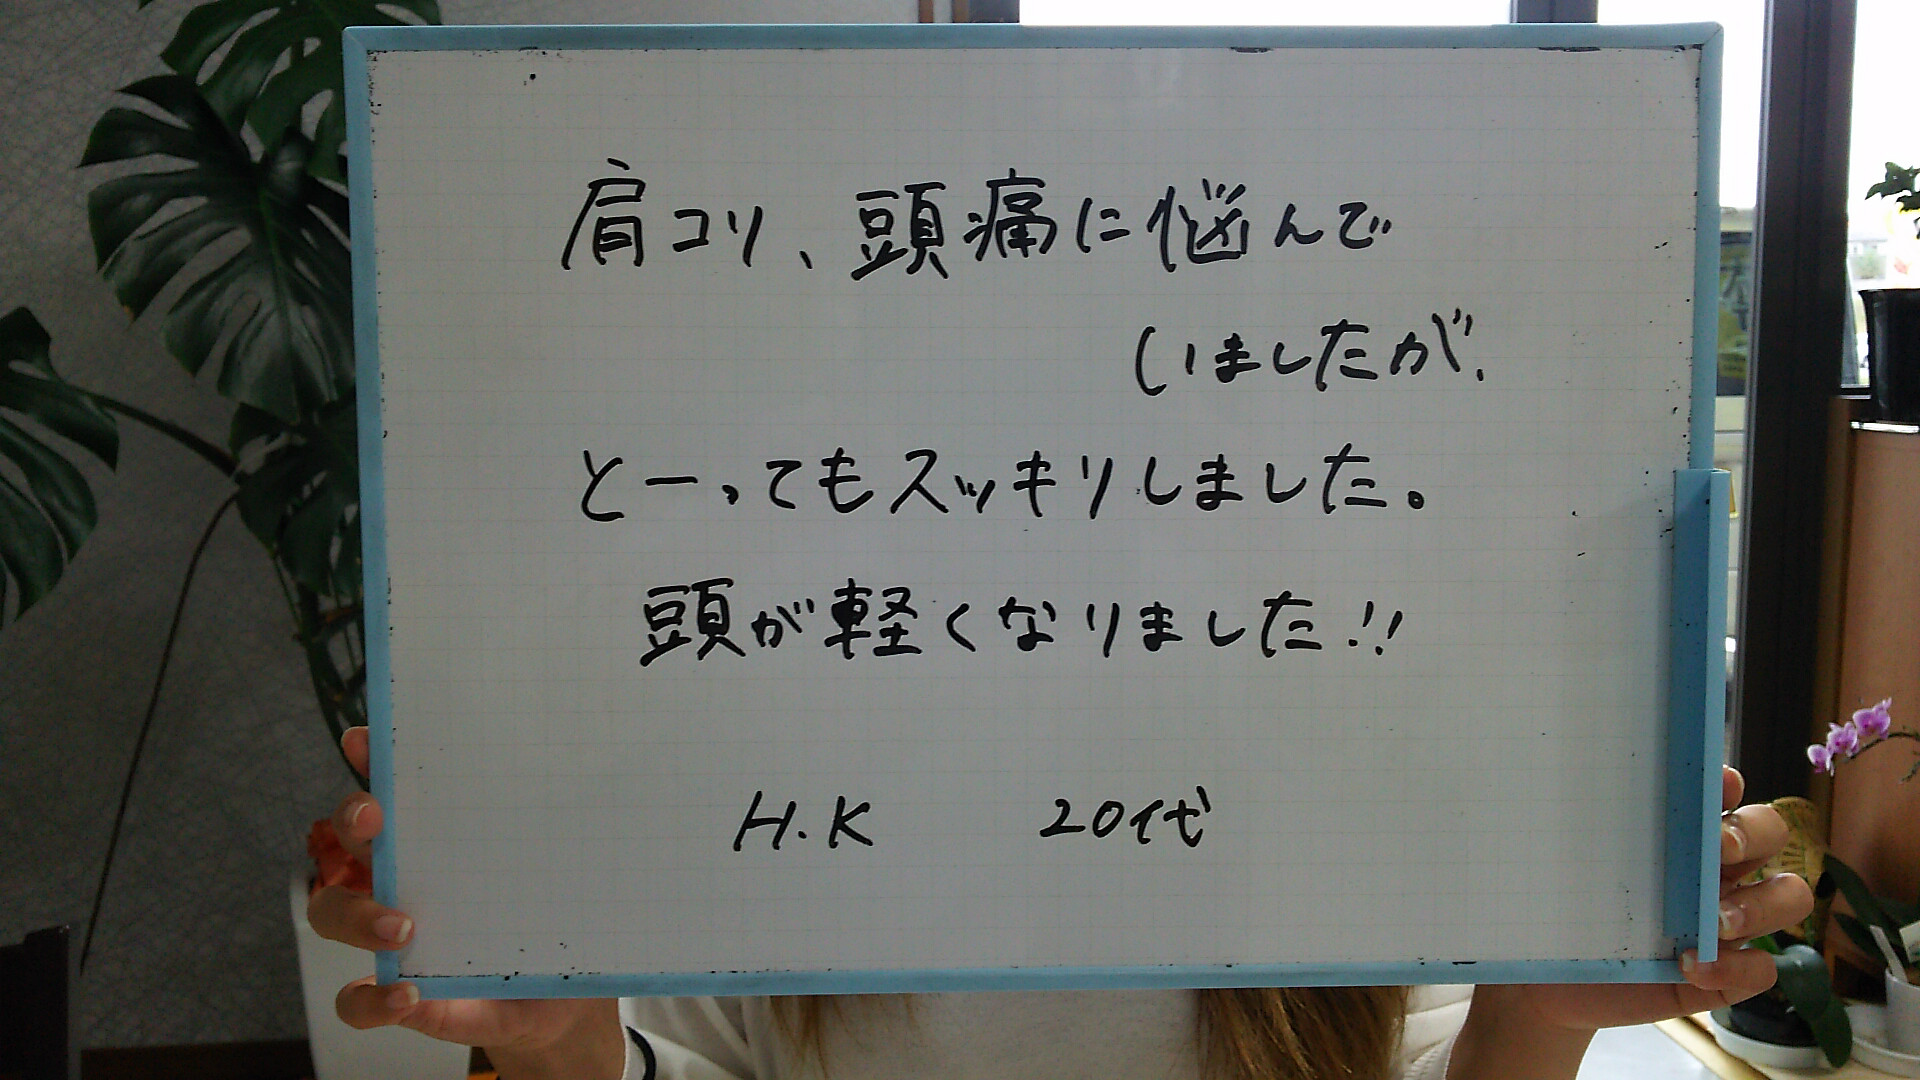 肩コリ、頭痛に悩んで
いましたが、
とーってもスッキリしました。
頭が軽くなりました!!
H.K 20代